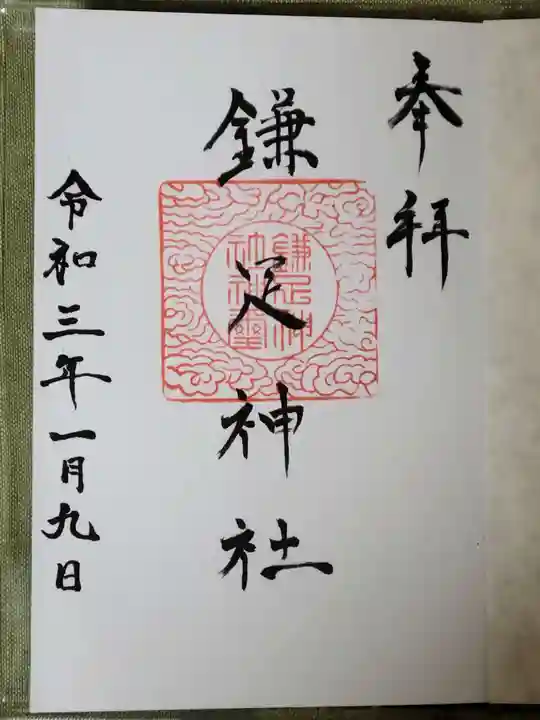 奉拝
鎌足神社
鎌足神社神璽
令和三年一月九日